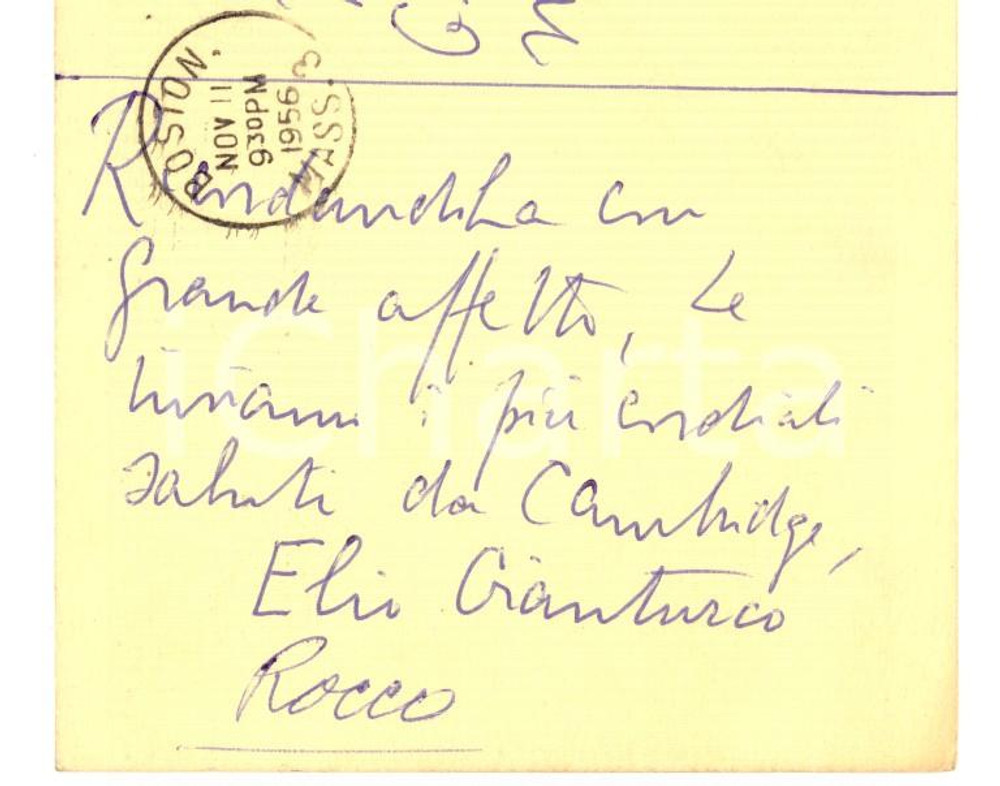 BOSTON, MASS. 3
NOV 11
930PM
1956
Ricordandola con
grande affetto, Le
inviamo i più cordiali
saluti da Cambridge,
Elio Gianturco
Rocco
iCharta